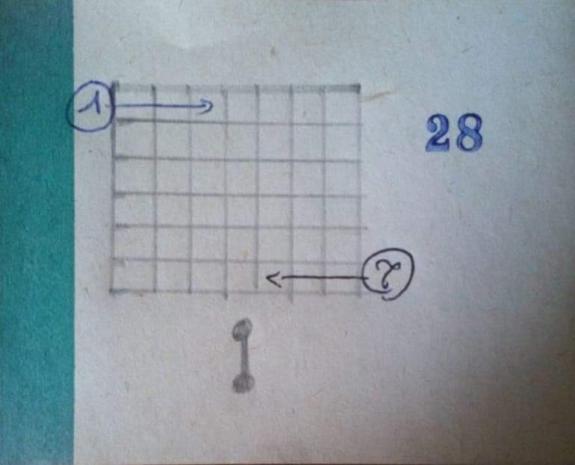 1
28
2